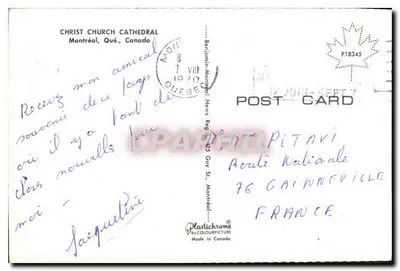 CHRIST CHURCH CATHEDRAL
Montréal, Qué., Canada
Recevez mon amical
souvenir de ce pays
où il y a tant de
choses nouvelles pour
moi -
Jacqueline
Benjamin Montreal News Reg'd
Guy St., Montreal
Plastichrome
BY COLOURPICTURE
Made in Canada
VIII
QUEBEC
P18345
POST CARD
PITAVI
Route Nationale
76 GAINNEVILLE
FRANCE